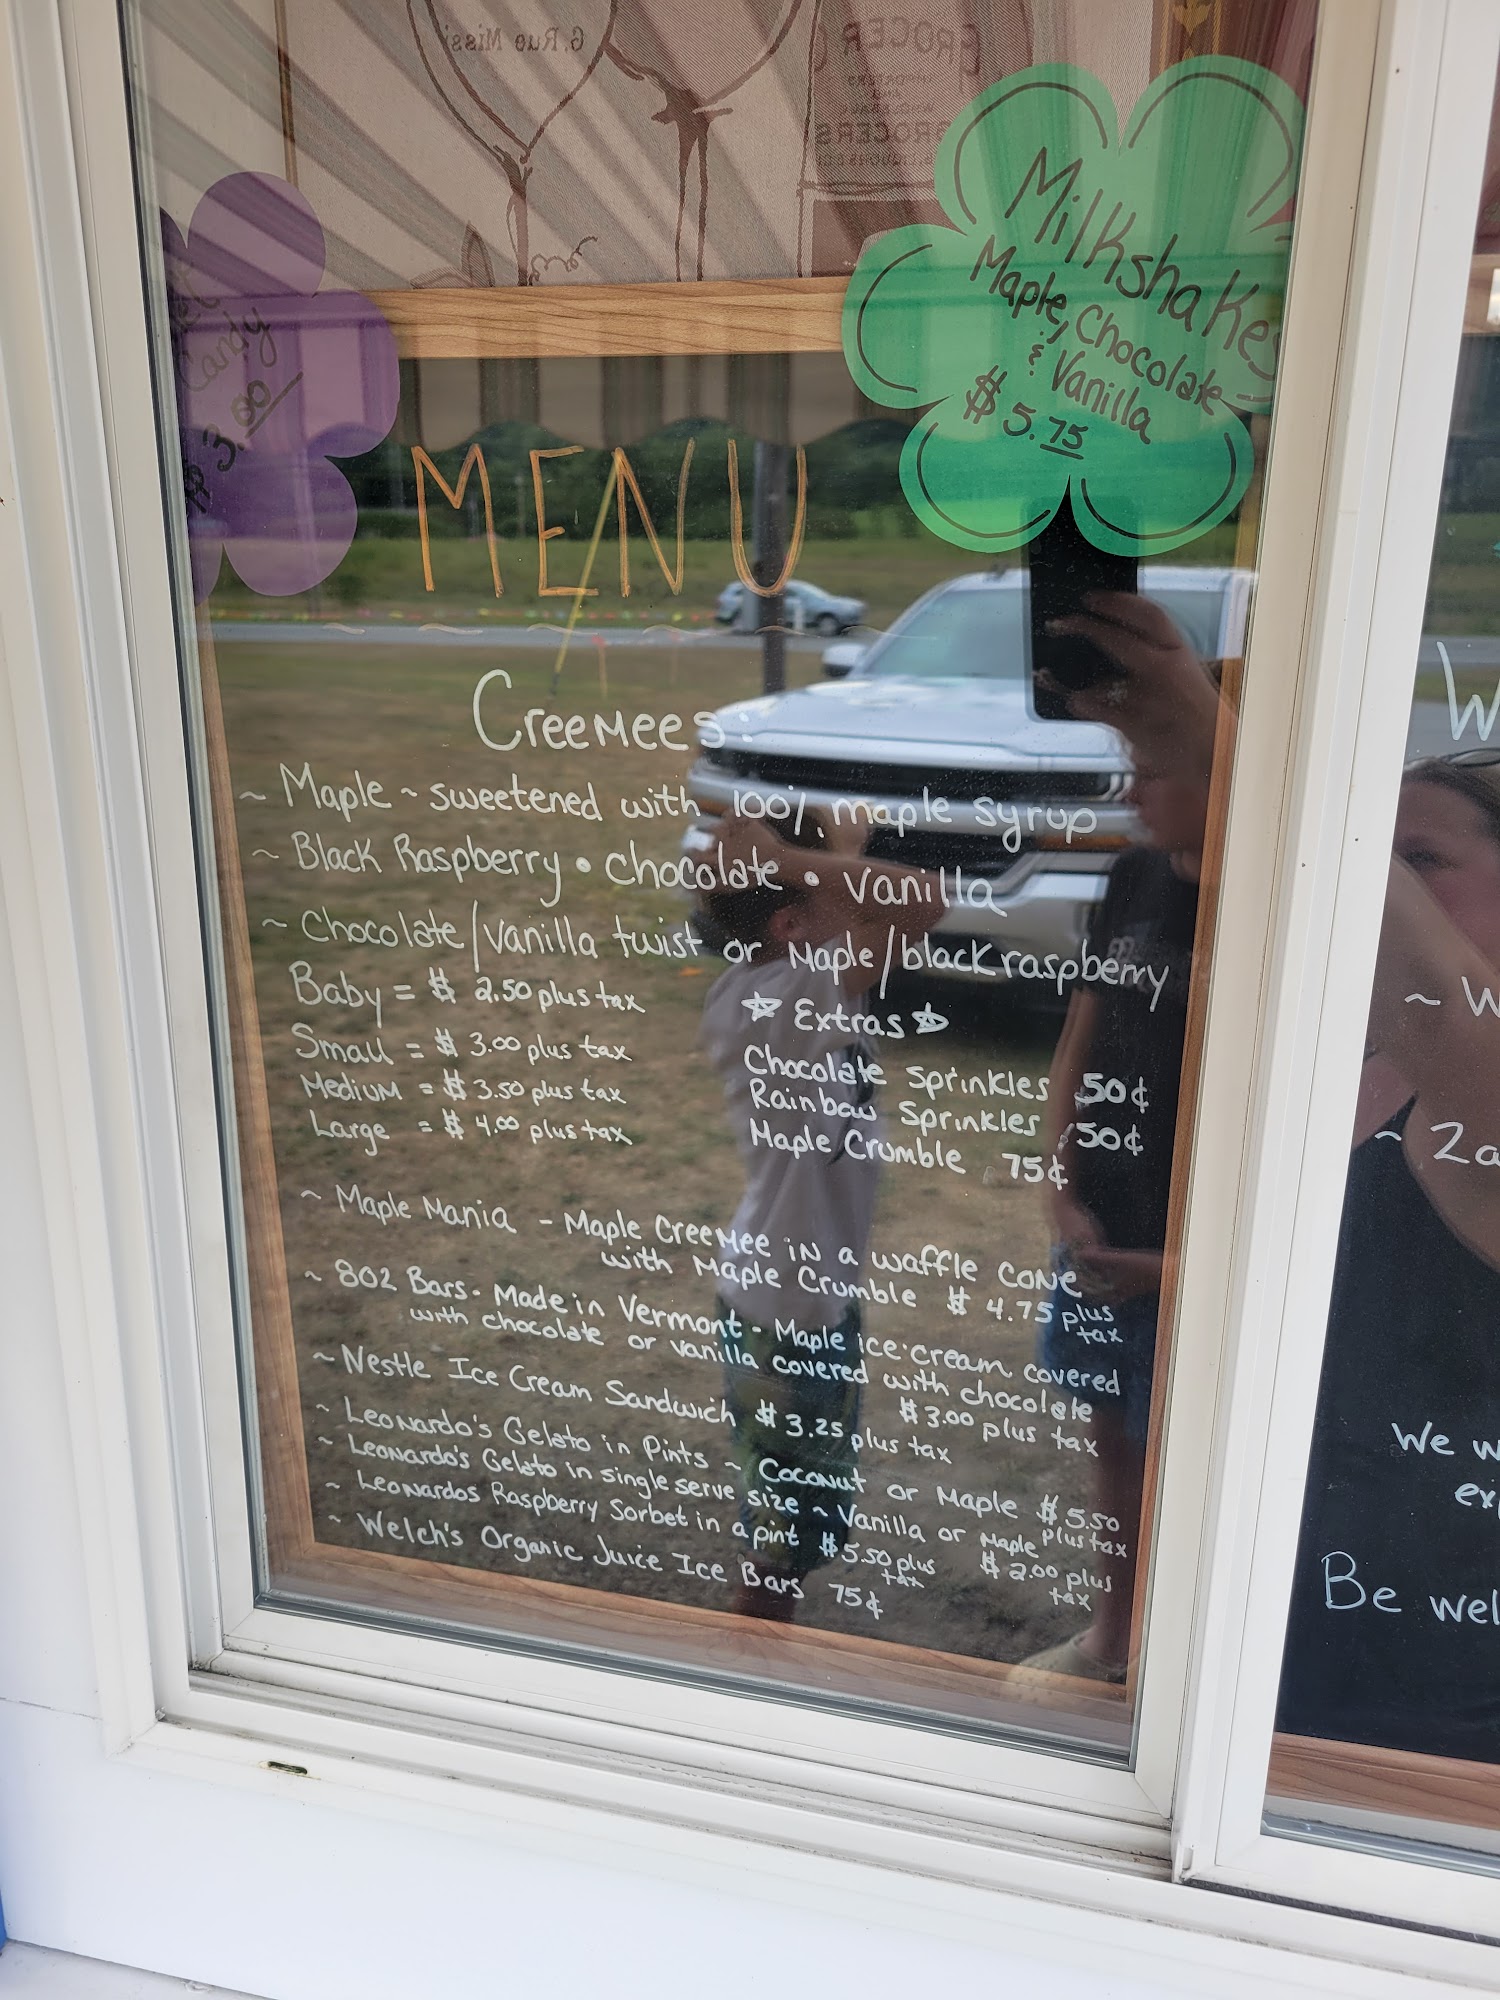 G. Rue Missi
GROCER
GROCERS
Candy
$3.00
Milkshakes
Maple, Chocolate
& Vanilla
$5.75
MENU
Creemees:
~ Maple ~ sweetened with 100% maple syrup
~ Black Raspberry • chocolate • vanilla
~ Chocolate/vanilla twist or maple/black raspberry
Baby = $2.50 plus tax
Small = $3.00 plus tax
Medium = $3.50 plus tax
Large = $4.00 plus tax
☆ Extras ☆
Chocolate Sprinkles 50¢
Rainbow Sprinkles 50¢
Maple Crumble 75¢
~ Maple Mania - Maple Creemee in a waffle cone
with Maple Crumble $4.75 plus
tax
~ 802 Bars - Made in Vermont - Maple ice-cream covered
with chocolate or vanilla covered with chocolate
$3.00 plus tax
~ Nestle Ice Cream Sandwich $3.25 plus tax
~ Leonardo's Gelato in Pints ~ Coconut or Maple $5.50
plus tax
~ Leonardo's Gelato in single serve size ~ Vanilla or Maple
$2.00 plus
tax
~ Leonardos Raspberry Sorbet in a pint $5.50 plus
tax
~ Welch's Organic Juice Ice Bars 75¢
W
~ W
~ 2a
We w
ex
Be wel